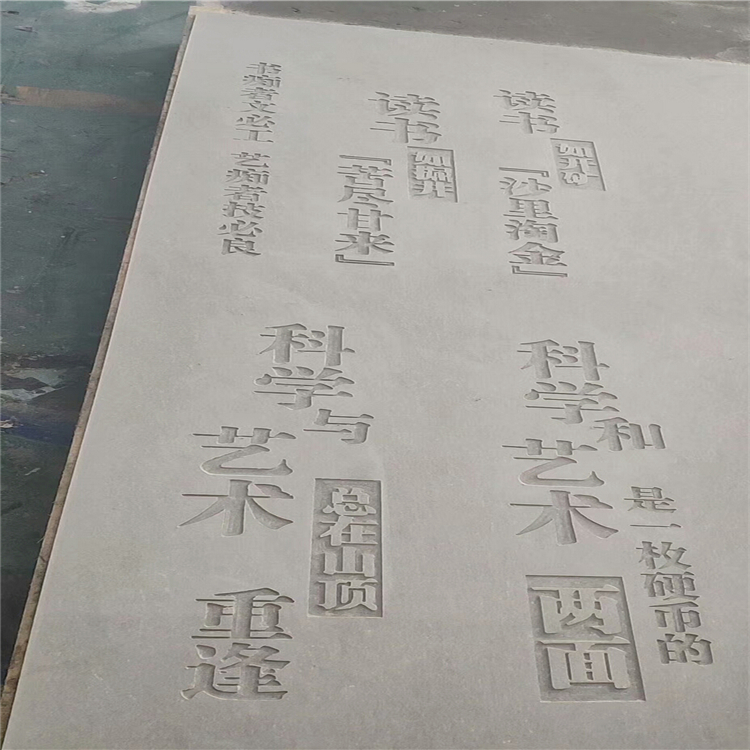 书痴者文必工 艺痴者技必良
读书
如掘井
『苦尽甘来』
读书
如开矿
『沙里淘金』
科学与
艺术
总在山顶
重逢
科学和
艺术
是一枚硬币的
两面